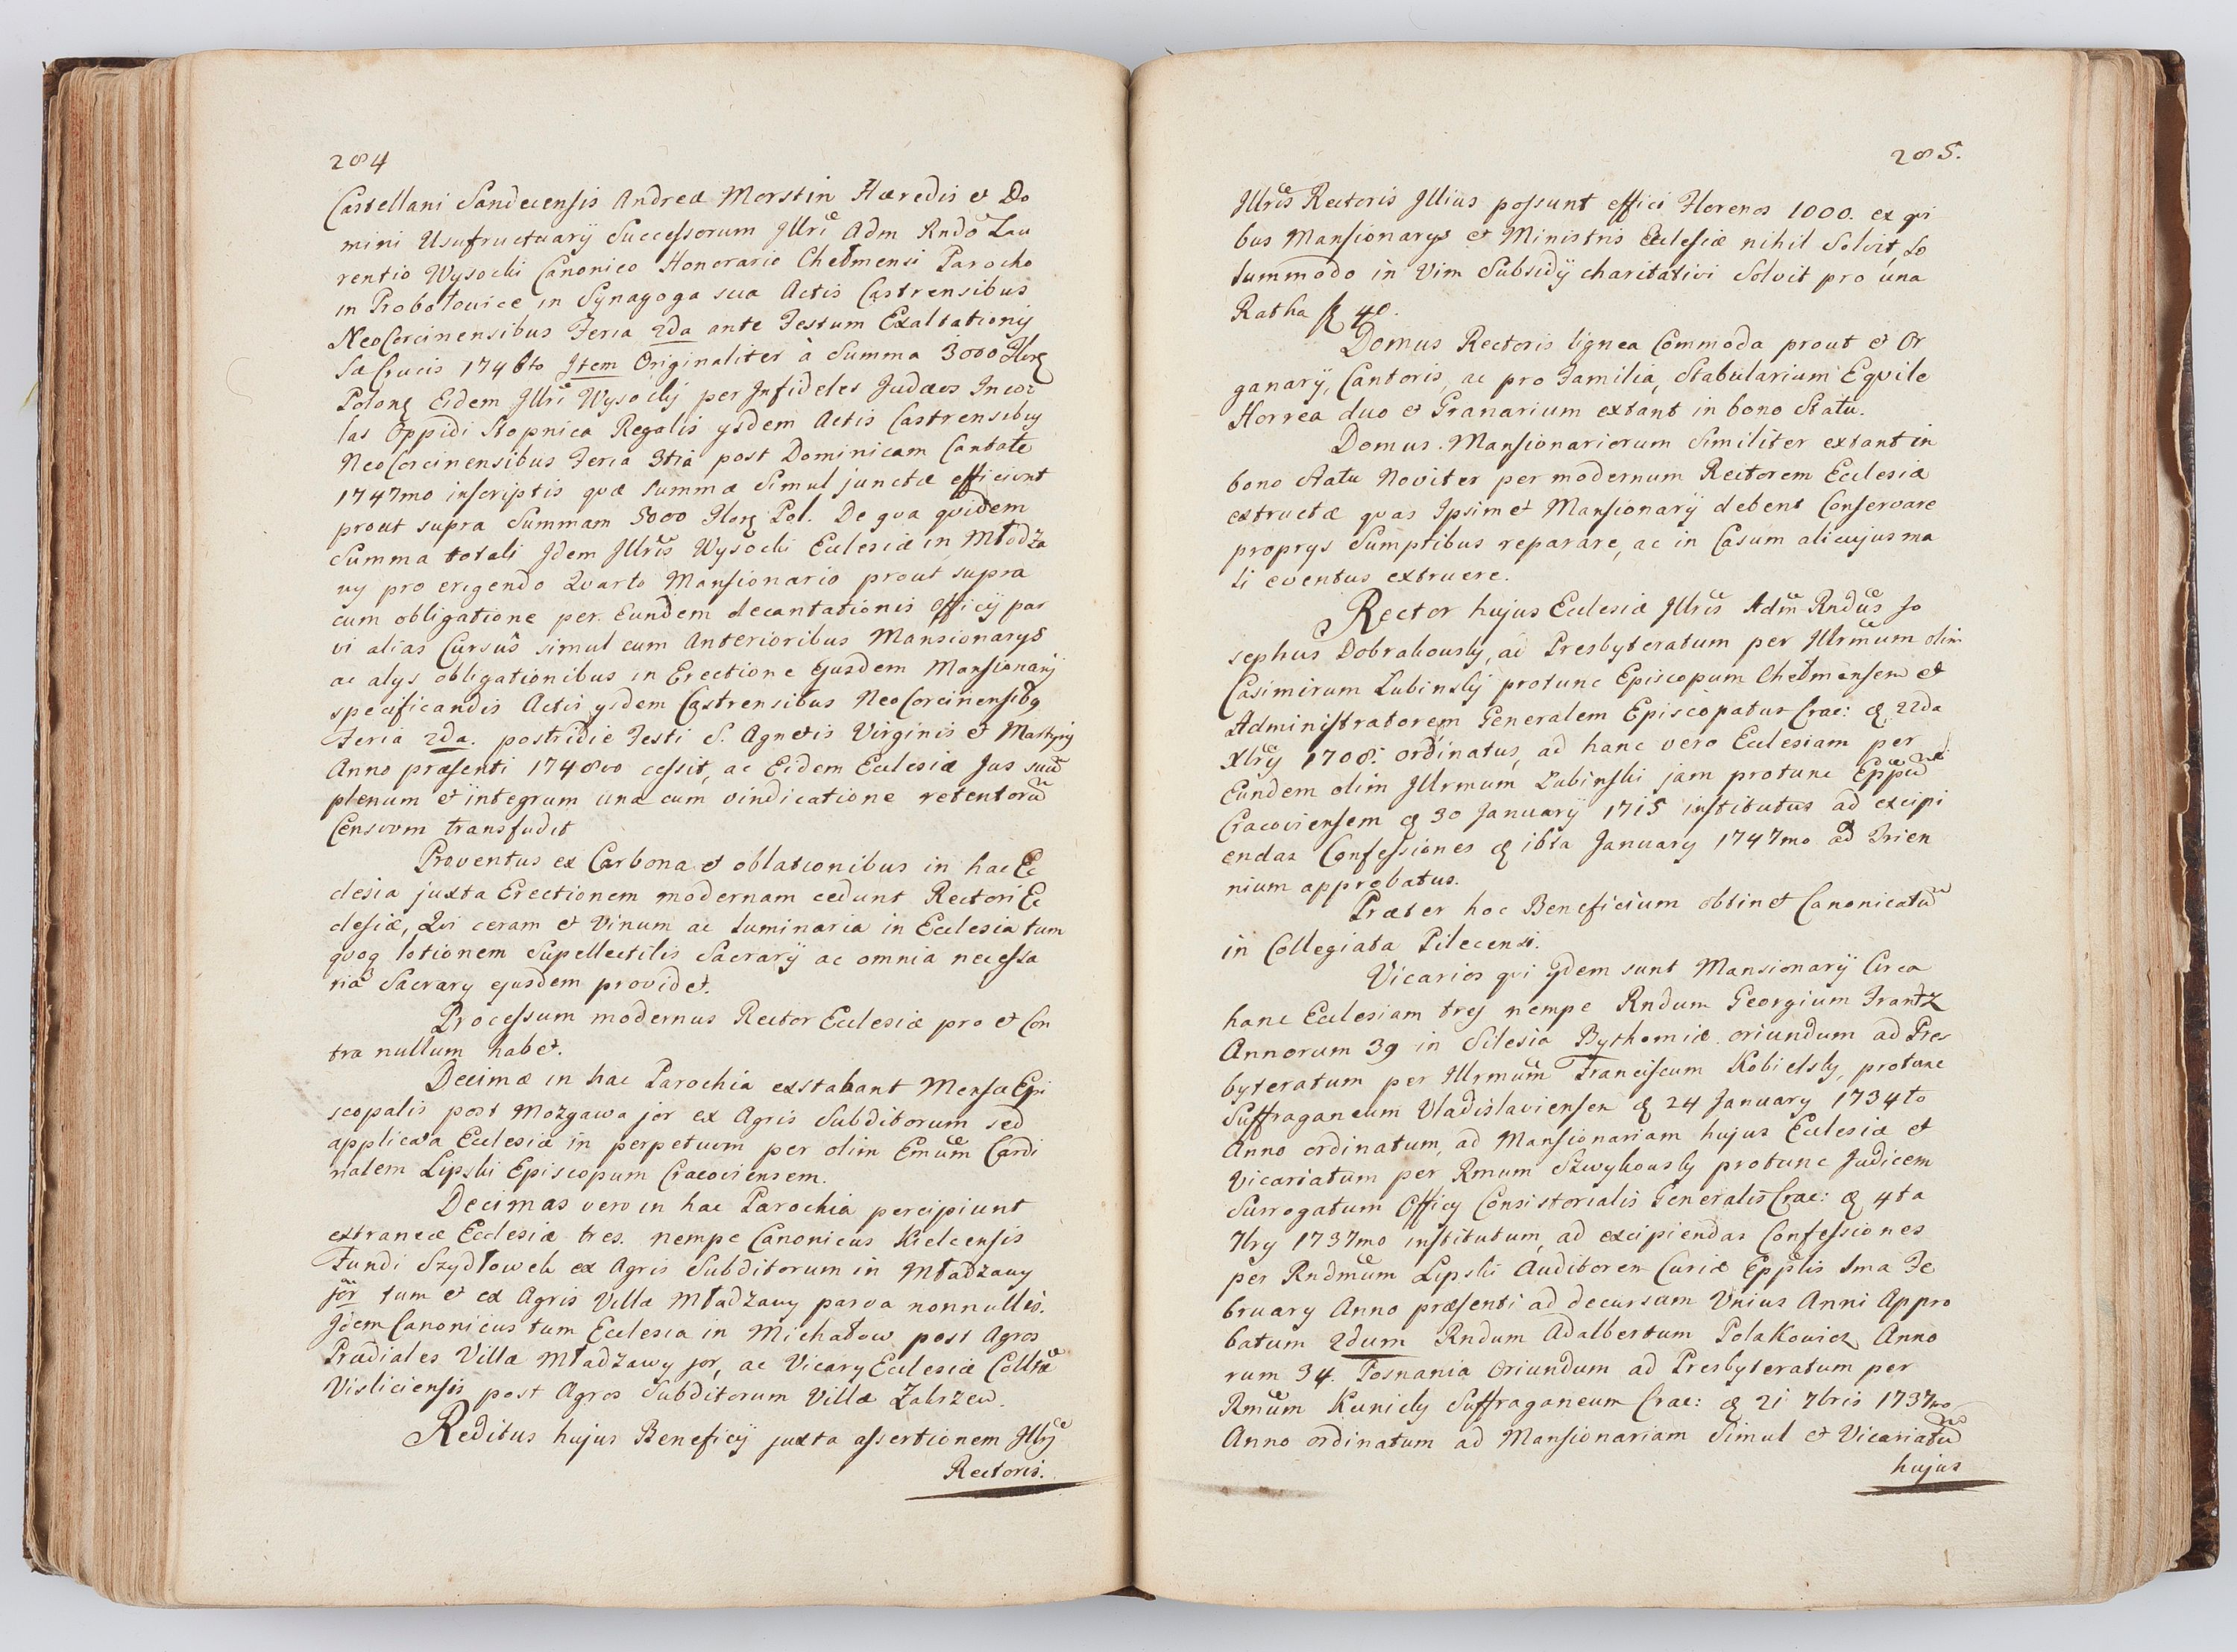 284
Castellani Sandecensis Andreæ Morstin Hæredis et Do
mini Usufructuarij Successorum Jllri Adm Rndo Lau
rentio Wysocki Canonico Honorario Chełmensi Parocho
in Probołowice in Synagoga sua Actis Castrensibus
NeoCorcinensibus Feria 2da ante Festum Exaltationis
Sæ Crucis 1746to Item Originaliter à Summa 3000 Flor
Polon Eidem Jllri Wysocky per Infideles Judæos Incol
las Oppidi Stopnica Regalis ysdem Actis Castrensibus
NeoCorcinensibus Feria 3tia post Dominicam Cantate
1747mo inscriptis quæ summæ Simul junctæ efficiunt
prout supra Summam 5000 Flor Pol. De qva qvidem
Summa totali Jdem Jllris Wysocki Ecclesiæ in Młodza
wy pro erigendo Qvarto Mansionario prout supra
cum obligatione per Eundem decantationis Officij par
vi alias Cursûs simul cum Anterioribus Mansionarys
ac alys obligationibus in Erectione Ejusdem Mansionarij
specificandis Actis ysdem Castrensibus NeoCorcinensibg
Feria 2da. postridie Festi S. Agnetis Virginis et Martyris
Anno præsenti 1748vo cessit, ac Eidem Ecclesiæ Jus suum
plenum et integrum una cum vindicatione retentorum
Censuum transfudit
Proventus ex Carbona et oblationibus in hac Ec
clesia juxta Erectionem modernam cedunt Rectori Ec
clesiæ, Qvi ceram et Vinum ac luminaria in Ecclesia tum
qvoq lotionem Supellectilis Sacrarij ac omnia necessa
ria Sacrary ejusdem providet.
Processum modernus Rector Ecclesiæ pro et Con
tra nullum habet.
Decimæ in hac Parochia exstabant Mensæ Epi
scopalis post Mozgawa jor ex Agris Subditorum sed
applicata Ecclesiæ in perpetuum per olim Emum Cardi
nalem Lipski Episcopum Cracoviensem.
Decimas vero in hac Parochia percipiunt
extraneæ Ecclesiæ tres. nempe Canonicus Kielcensis
Fundi Szydłowek ex Agris Subditorum in Mładzawy
jor tum et ex Agris Villæ Mładzawy parva nonnullis.
Jdem Canonicus tum Ecclesia in Michałow post Agros
Prædiales Villæ Mładzawy jor, ac Vicary Ecclesiæ Colltæ
Visliciensis post Agros Subditorum Villæ Zakrzew.
Reditus hujus Beneficij juxta assertionem Jllris
Rectoris.
285.
Jllris Rectoris Jllius possunt effici Florenos 1000. ex qvi
bus Mansionarys et Ministris Ecclesiæ nihil Solvit, So
lummodo in Vim Subsidij charitativi Solvit pro una
Ratha f 40.
Domus Rectoris lignea Commoda prout et Or
ganarij, Cantoris, ac pro Familia, Stabularium Eqvile
Horrea duo et Granarium extant in bono Statu.
Domus Mansionariorum Similiter extant in
bono Statu Noviter per modernum Rectorem Ecclesiæ
extructæ qvas Ipsimet Mansionarij debent Conservare
proprys Sumptibus reparare, ac in Casum alicujus ma
li eventus extruere.
Rector hujus Ecclesiæ Jllris Adm Rndus Jo
sephus Dobrakowsky, ad Presbyteratum per Jllrmum olim
Casimirum Lubinskj protunc Episcopum Chełmensem et
Administratorem Generalem Episcopatus Crac: d 22da
Xbrij 1708. ordinatus, ad hanc vero Ecclesiam per
Eundem olim Jllrmum Lubinski jam protunc Eppum
Cracoviensem d 30 Januarij 1715 institutus ad excipi
endas Confessiones d 16ta January 1747mo ad Trien
nium approbatus.
Præter hoc Beneficium obtinet Canonicatum
in Collegiata Pilecensi.
Vicarios qvi ijdem sunt Mansionarij Circa
hanc Ecclesiam trej nempe Rndum Georgium Frantz
Annorum 39 in Silesia Bythomiæ oriundum ad Pres
byteratum per Jllrmum Franciscum Kobielsky, protunc
Suffraganeum Vladislaviensem d 24 January 1734to
Anno ordinatum, ad Mansionariam hujus Ecclesiæ et
Vicariatum per Rmum Szwykowsky protunc Judicem
Surrogatum Officy Consistorialis Generalis Crac: d 4ta
7bry 1737mo institutum, ad excipiendas Confessiones
per Rndmum Lipski Auditorem Curiæ Epplis 1ma Fe
bruary Anno præsenti ad decursum Unius Anni Appro
batum 2dum Rndum Adalbertum Polakowicz Anno
rum 34. Posnania Oriundum ad Presbyteratum per
Rmum Kunicky Suffraganeum Crac: d 21 7bris 1737mo
Anno ordinatum ad Mansionariam Simul et Vicariatum
hujus